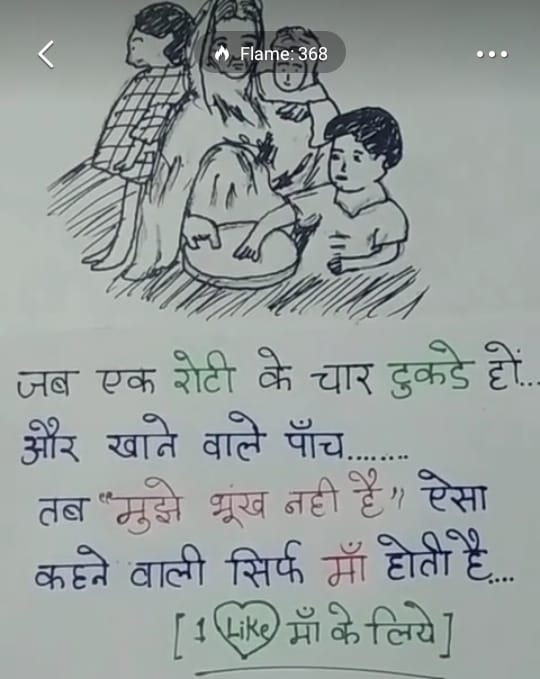 Flame: 368
जब एक रोटी के चार टुकडे हों...
और खाने वाले पाँच........
तब "मुझे भूंख नही है" ऐसा
कहने वाली सिर्फ माँ होती है....
[1 Like माँ के लिये]